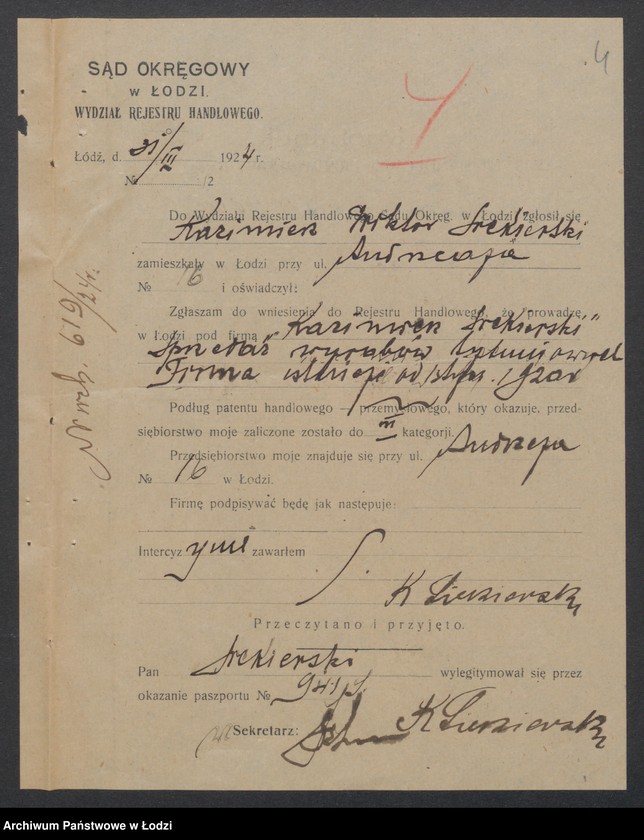 4
SĄD OKRĘGOWY
w ŁODZI.
WYDZIAŁ REJESTRU HANDLOWEGO.
Łódź, d. 31/III 1924 r.
№ /2
Do Wydziału Rejestru Handlowego Sądu Okręg. w Łodzi zgłosił się
Kazimierz Wiktor Siekierski
zamieszkały w Łodzi przy ul. Andrzeja
№ 16 i oświadczył:
Zgłaszam do wniesienia do Rejestru Handlowego, że prowadzę
w Łodzi pod firmą „Kazimierz Siekierski”
Sprzedaż wyrobów tytuniowych
Firma istnieje od 1920
Podług patentu handlowego - przemysłowego, który okazuję, przed-
siębiorstwo moje zaliczone zostało do III kategorji.
Przedsiębiorstwo moje znajduje się przy ul. Andrzeja
№ 16 w Łodzi.
Firmę podpisywać będę jak następuje:
Intercyzy nie zawarłem
K Siekierski
Przeczytano i przyjęto.
Pan Siekierski wylegitymował się przez
okazanie paszportu №
Sekretarz: K Siekierski
619/24 r.
Archiwum Państwowe w Łodzi